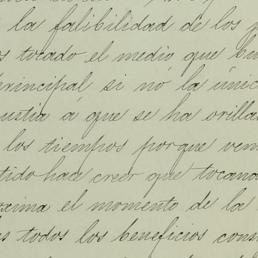 la falibilidad de los
tocado el medio que
principal si nó la únic
á que se ha orilla
los tiempos porque ven
tido hace creer que tocano
xima el momento de la
s todos los beneficios cons